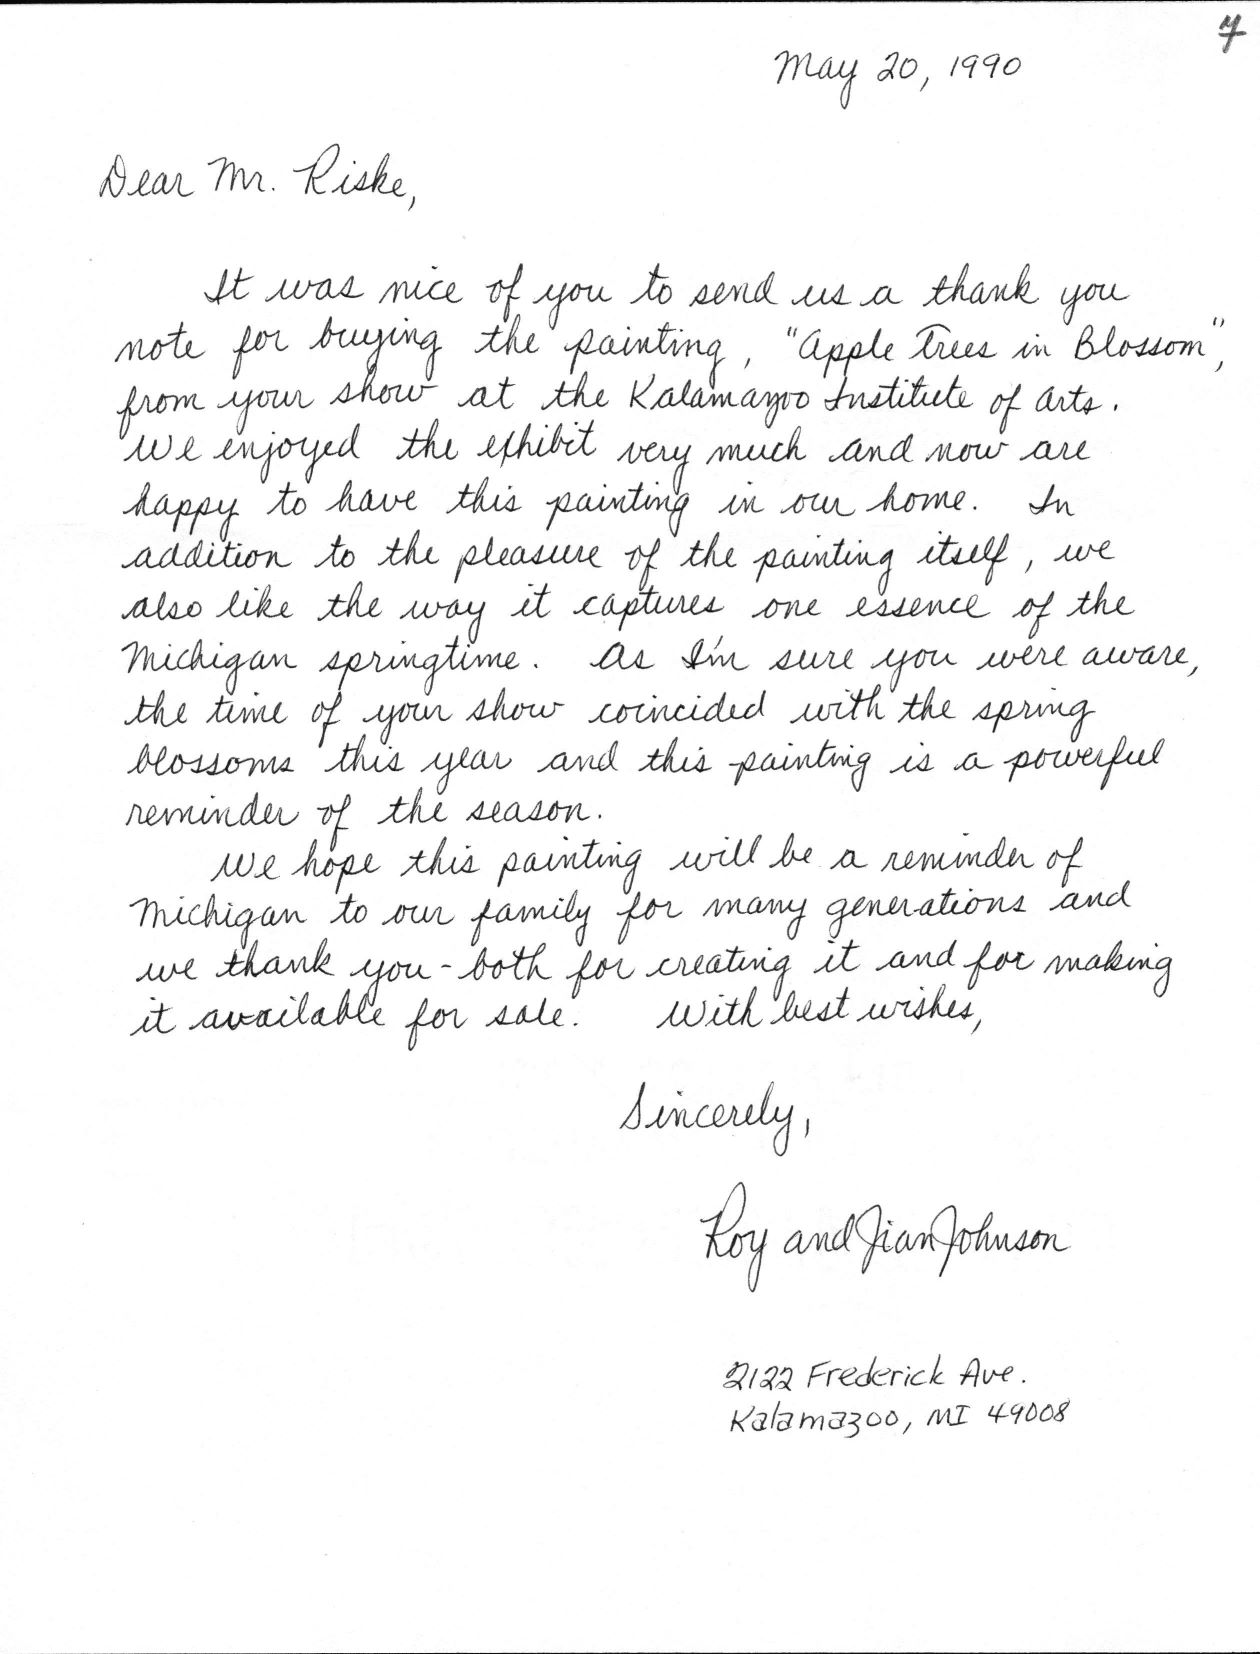 7
May 20, 1990
Dear Mr. Riske,
It was nice of you to send us a thank you
note for buying the painting, "Apple Trees in Blossom",
from your show at the Kalamazoo Institute of Arts.
We enjoyed the exhibit very much and now are
happy to have this painting in our home. In
addition to the pleasure of the painting itself, we
also like the way it captures one essence of the
Michigan springtime. As I'm sure you were aware,
the time of your show coincided with the spring
blossoms this year and this painting is a powerful
reminder of the season.
We hope this painting will be a reminder of
Michigan to our family for many generations and
we thank you - both for creating it and for making
it available for sale. With best wishes,
Sincerely,
Roy and Jian Johnson
2122 Frederick Ave.
Kalamazoo, MI 49008